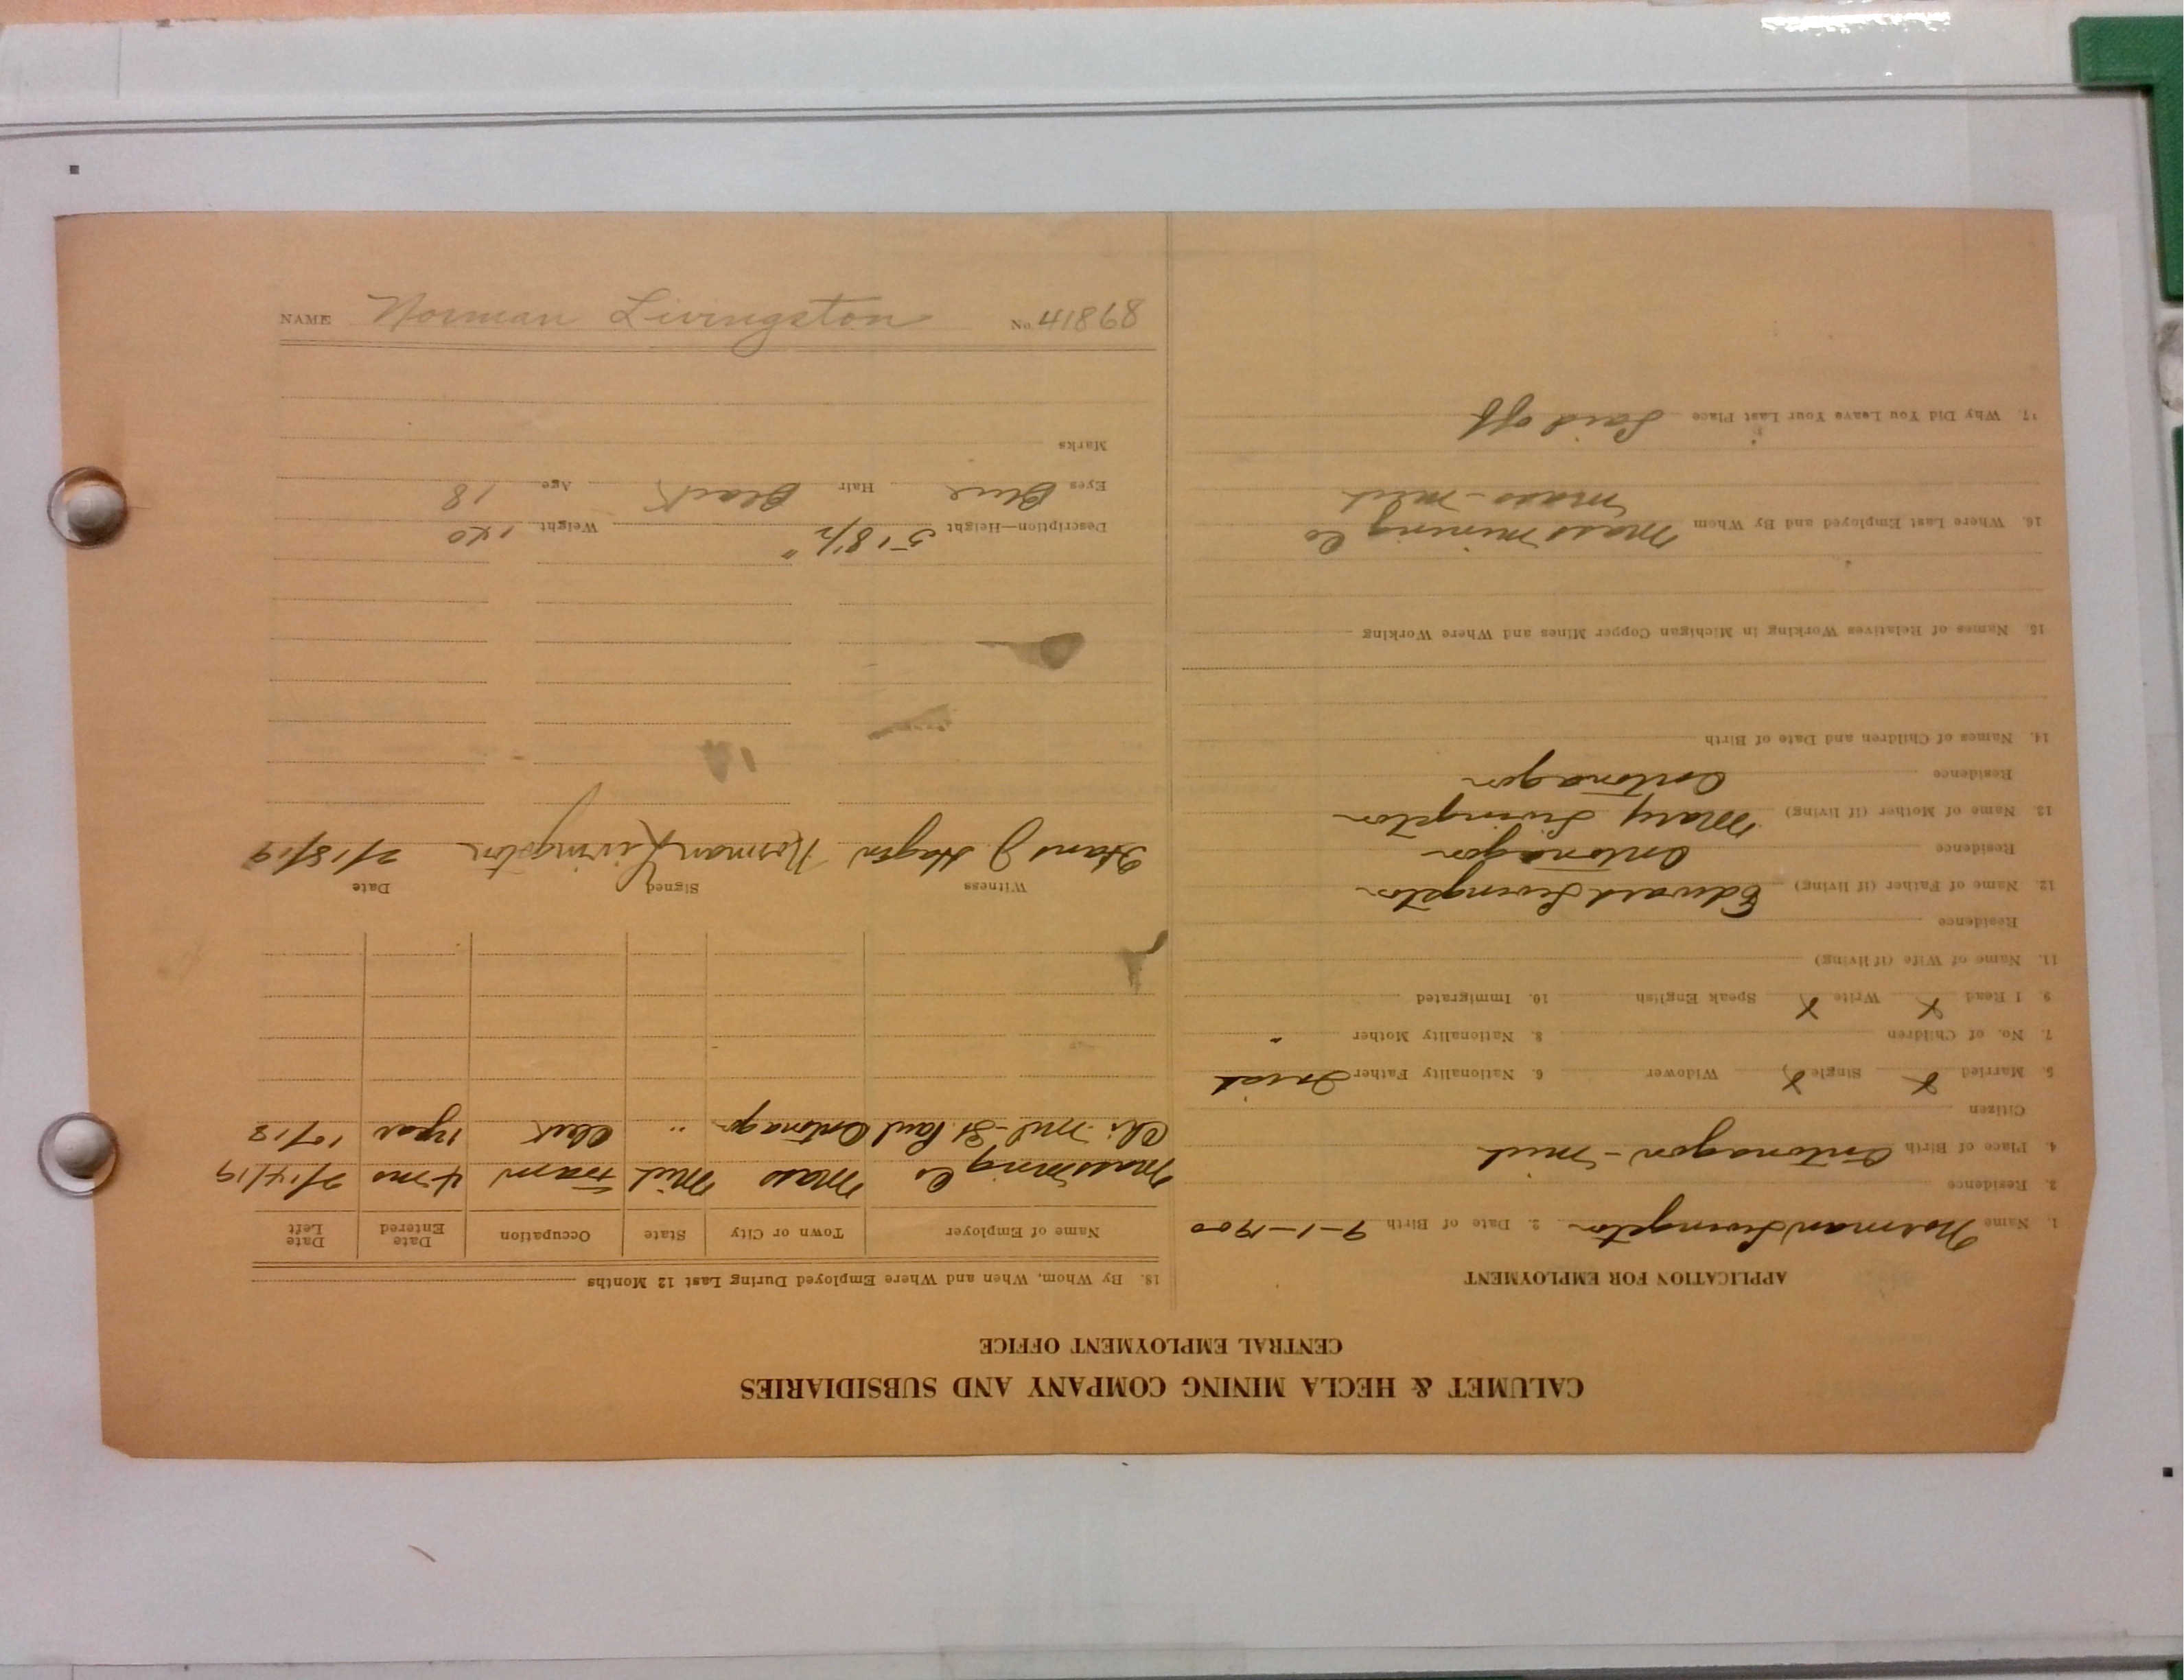 CALUMET & HECLA MINING COMPANY AND SUBSIDIARIES
CENTRAL EMPLOYMENT OFFICE
APPLICATION FOR EMPLOYMENT
1. Name Norman Livingston 2. Date of Birth 9-1-1900
3. Residence
4. Place of Birth Ontonagon - Mich
Citizen
5. Married X Single X Widower 6. Nationality Father Irish
7. No. of Children 8. Nationality Mother "
9. I Read X Write X Speak English 10. Immigrated
11. Name of Wife (if living)
Residence
12. Name of Father (if living) Edward Livingston
Residence Ontonagon
13. Name of Mother (if living) Mary Livingston
Residence Ontonagon
14. Names of Children and Date of Birth
15. Names of Relatives Working in Michigan Copper Mines and Where Working
16. Where Last Employed and By Whom Mass Mining Co
Mass - Mich
17. Why Did You Leave Your Last Place Laid off
18. By Whom, When and Where Employed During Last 12 Months
Name of Employer Town or City State Occupation Date Entered Date Left
Mass Mining Co Mass Mich Tram 4 mo 2/14/19
Chi. Mil - St. Paul Ontonagon " Clerk 1 year 10/18
Witness Signed Date
Hans J. Hagen Norman Livingston 2/18/19
Description—Height 5' 8 1/2" Weight 140
Eyes Blue Hair Black Age 18
Marks
NAME Norman Livingston No. 41868